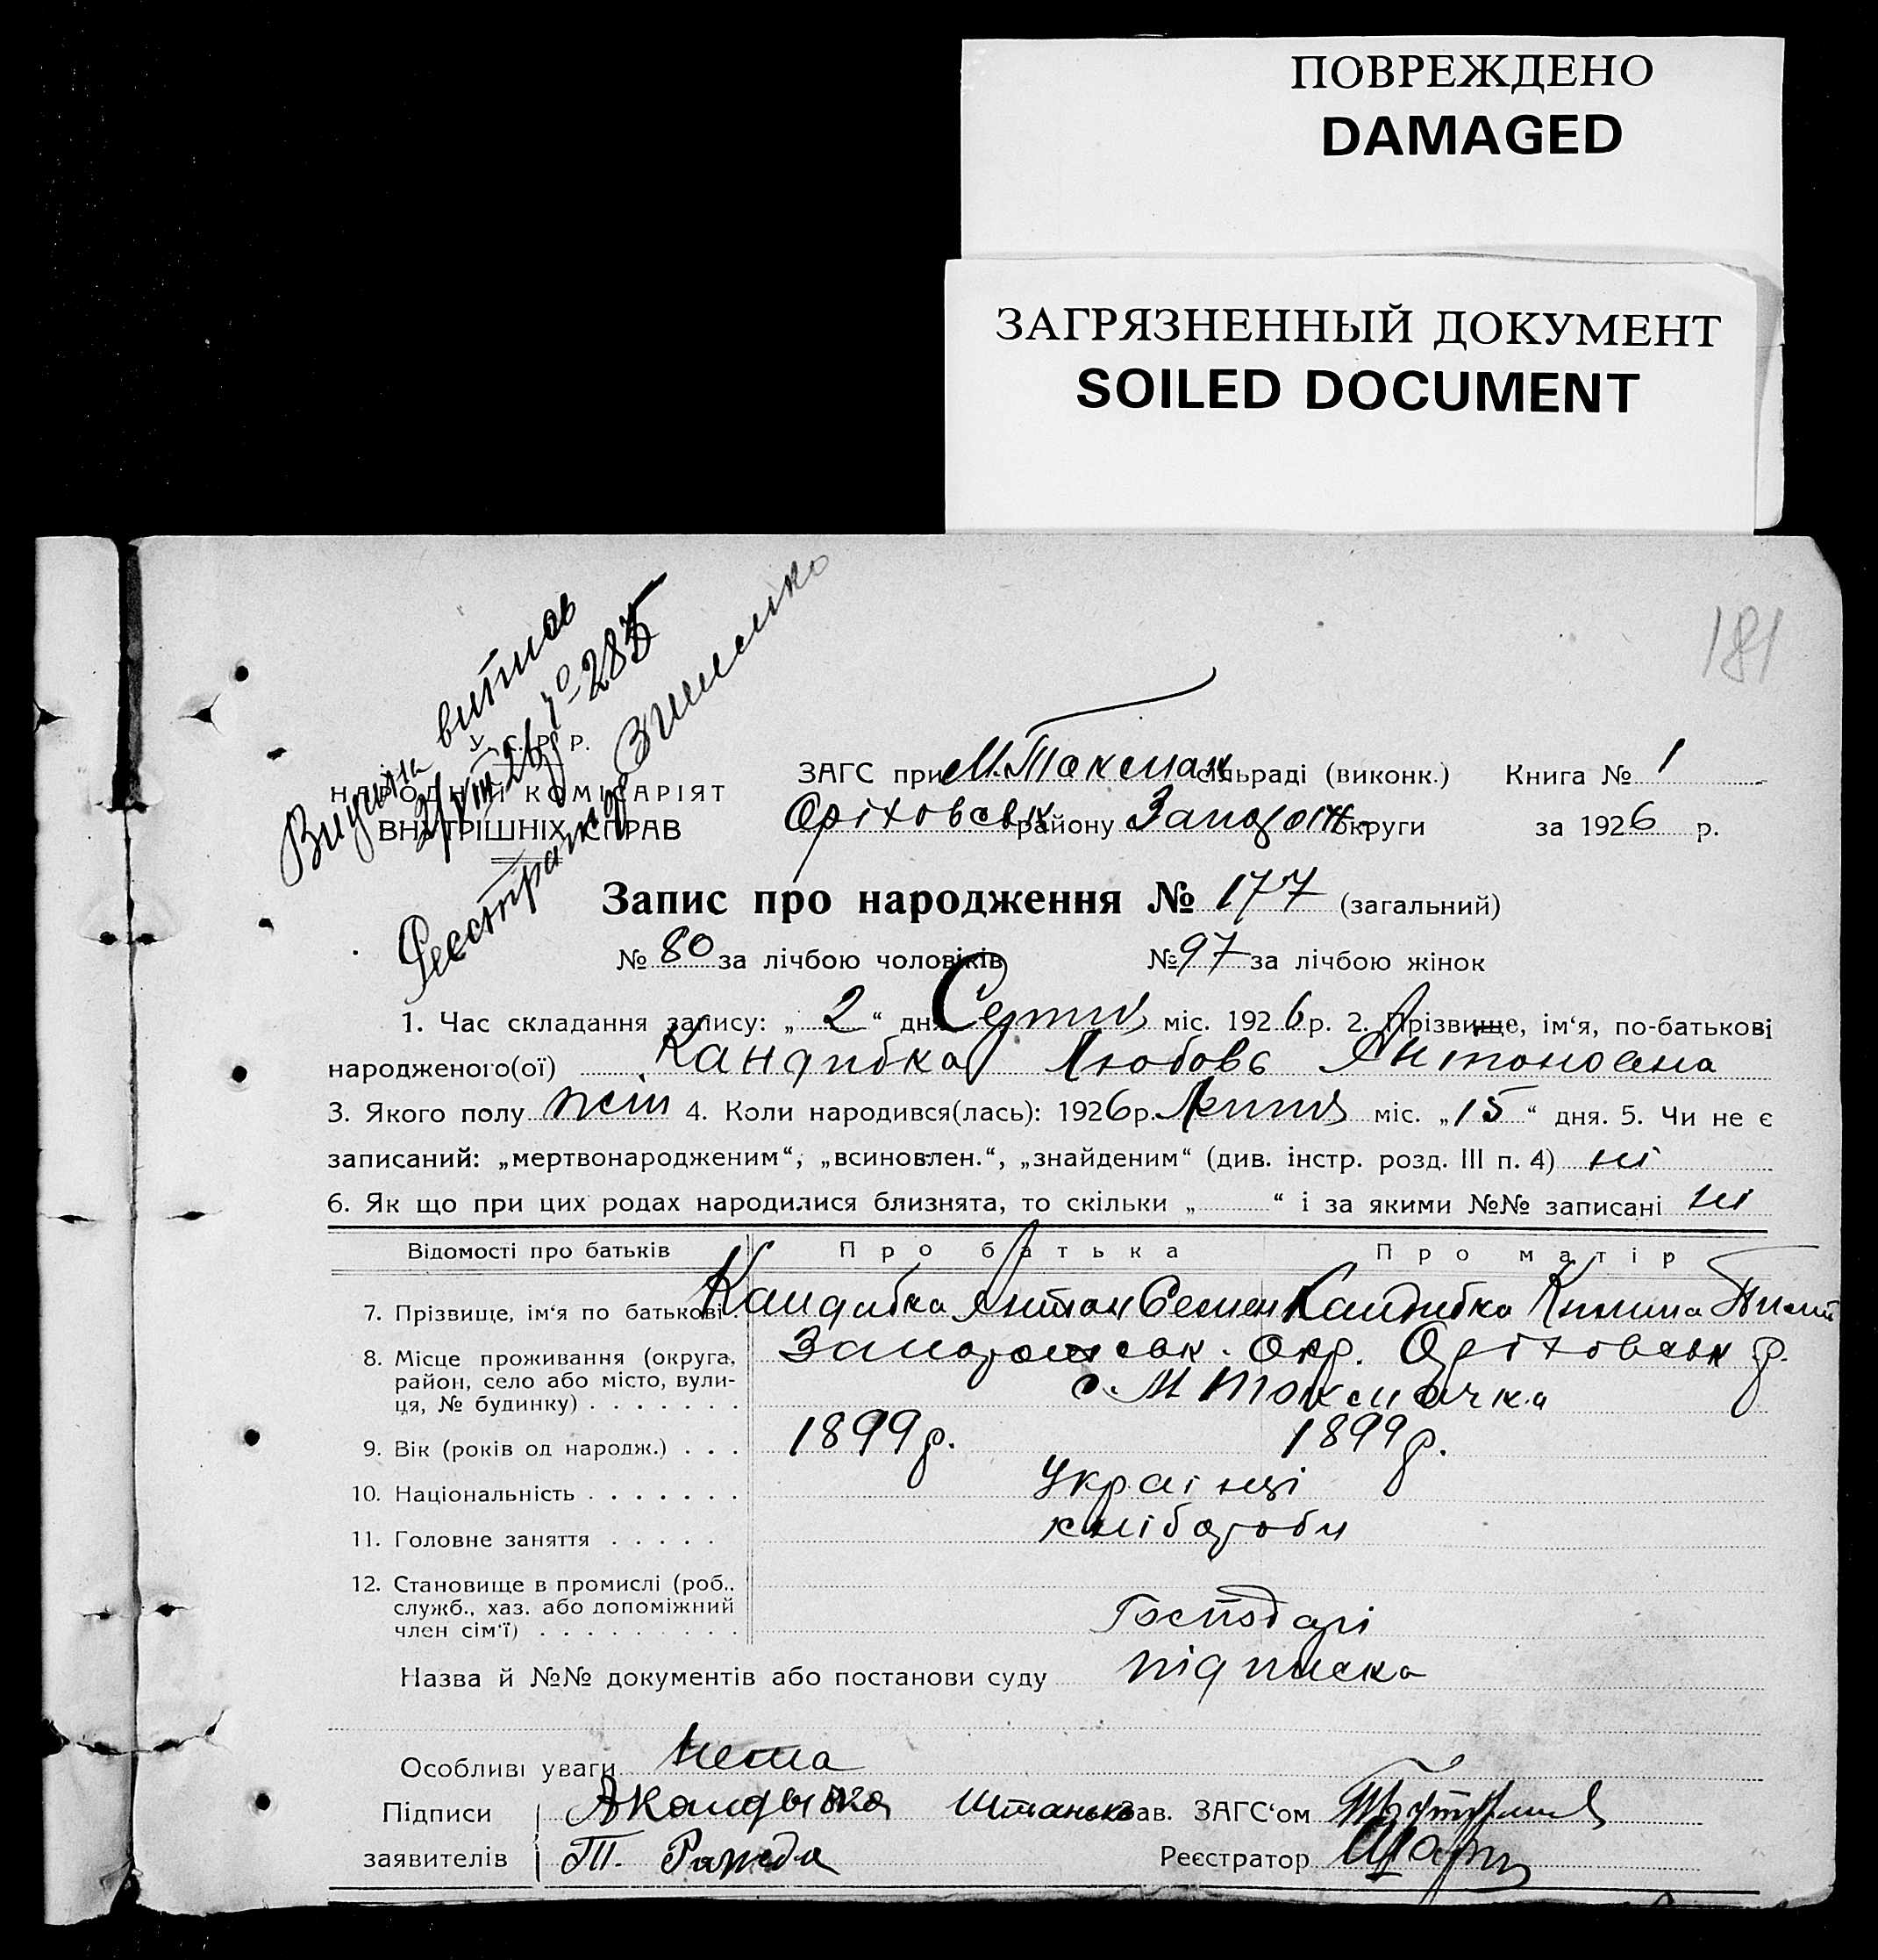 ПОВРЕЖДЕНО
DAMAGED
ЗАГРЯЗНЕННЫЙ ДОКУМЕНТ
SOILED DOCUMENT
181
Видана витпов
У. С. Р. Р.
НАРОДНІЙ КОМІСАРІЯТ
ВНУТРІШНІХ СПРАВ
Реєстратор Зинченко
ЗАГС при М.Токмач сільраді (виконк.) Книга № 1
Оріховськ району Запорож округи за 1926 р.
Запис про народження № 177 (загальний)
№ 80 за лічбою чоловіків № 97 за лічбою жінок
1. Час складання запису: „ 2 “ дня Серпня міс. 1926 р. 2. Прізвище, ім‘я, по-батькові
народженого(ої) Кандибка Любовь Антоновна
3. Якого полу жін 4. Коли народився(лась): 1926р. Липня міс. „15“ дня. 5. Чи не є
записаний: „мертвонародженим“, „всиновлен.“, „знайденим“ (див. інстр. розд. III п. 4) ні
6. Як що при цих родах народилися близнята, то скільки „ “ і за якими №№ записані ні
Відомості про батьків Про батька Про матір
7. Прізвище, ім‘я по батькові . Кандибка Антон Семен Кандибка Килина
8. Місце проживання (округа, Запорожськ. окр. Оріховськ р.
район, село або місто, вули- с. М Токмачка
ця, № будинку) . . . . . . .
9. Вік (років од народж.) . . . 1899р. 1899р.
10. Національність . . . . . . . Українці
11. Головне заняття . . . . . хлібороби
12. Становище в промислі (роб.,
служб., хаз. або допоміжний Господарі
член сім‘ї) . . . . . . . . .
Назва й №№ документів або постанови суду підписка
Особливі уваги нема
Підписи АКандыбка Штанько Зав. ЗАГС‘ом
заявителів Т. Реєстратор